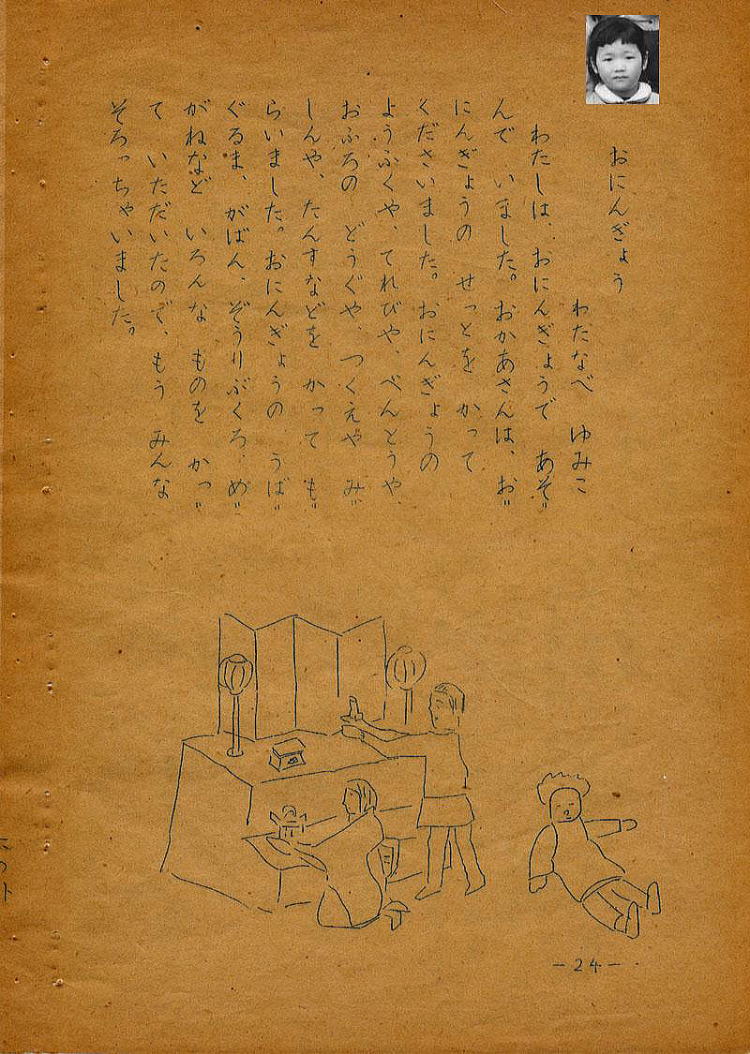 おにんぎょう
わたなべ ゆみこ
わたしは、おにんぎょうで あそ
んで いました。おかあさんは、お
にんぎょうの せっとを かって
くださいました。おにんぎょうの
ようふくや、てれびや、べんとうや、
おふろの どうぐや、つくえや み
しんや、たんすなどを かって も
らいました。おにんぎょうの うば
ぐるま、がばん、ぞうりぶくろ、め
がねなど いろんな ものを かっ
て いただいたので、もう みんな
そろっちゃいました。
-24-